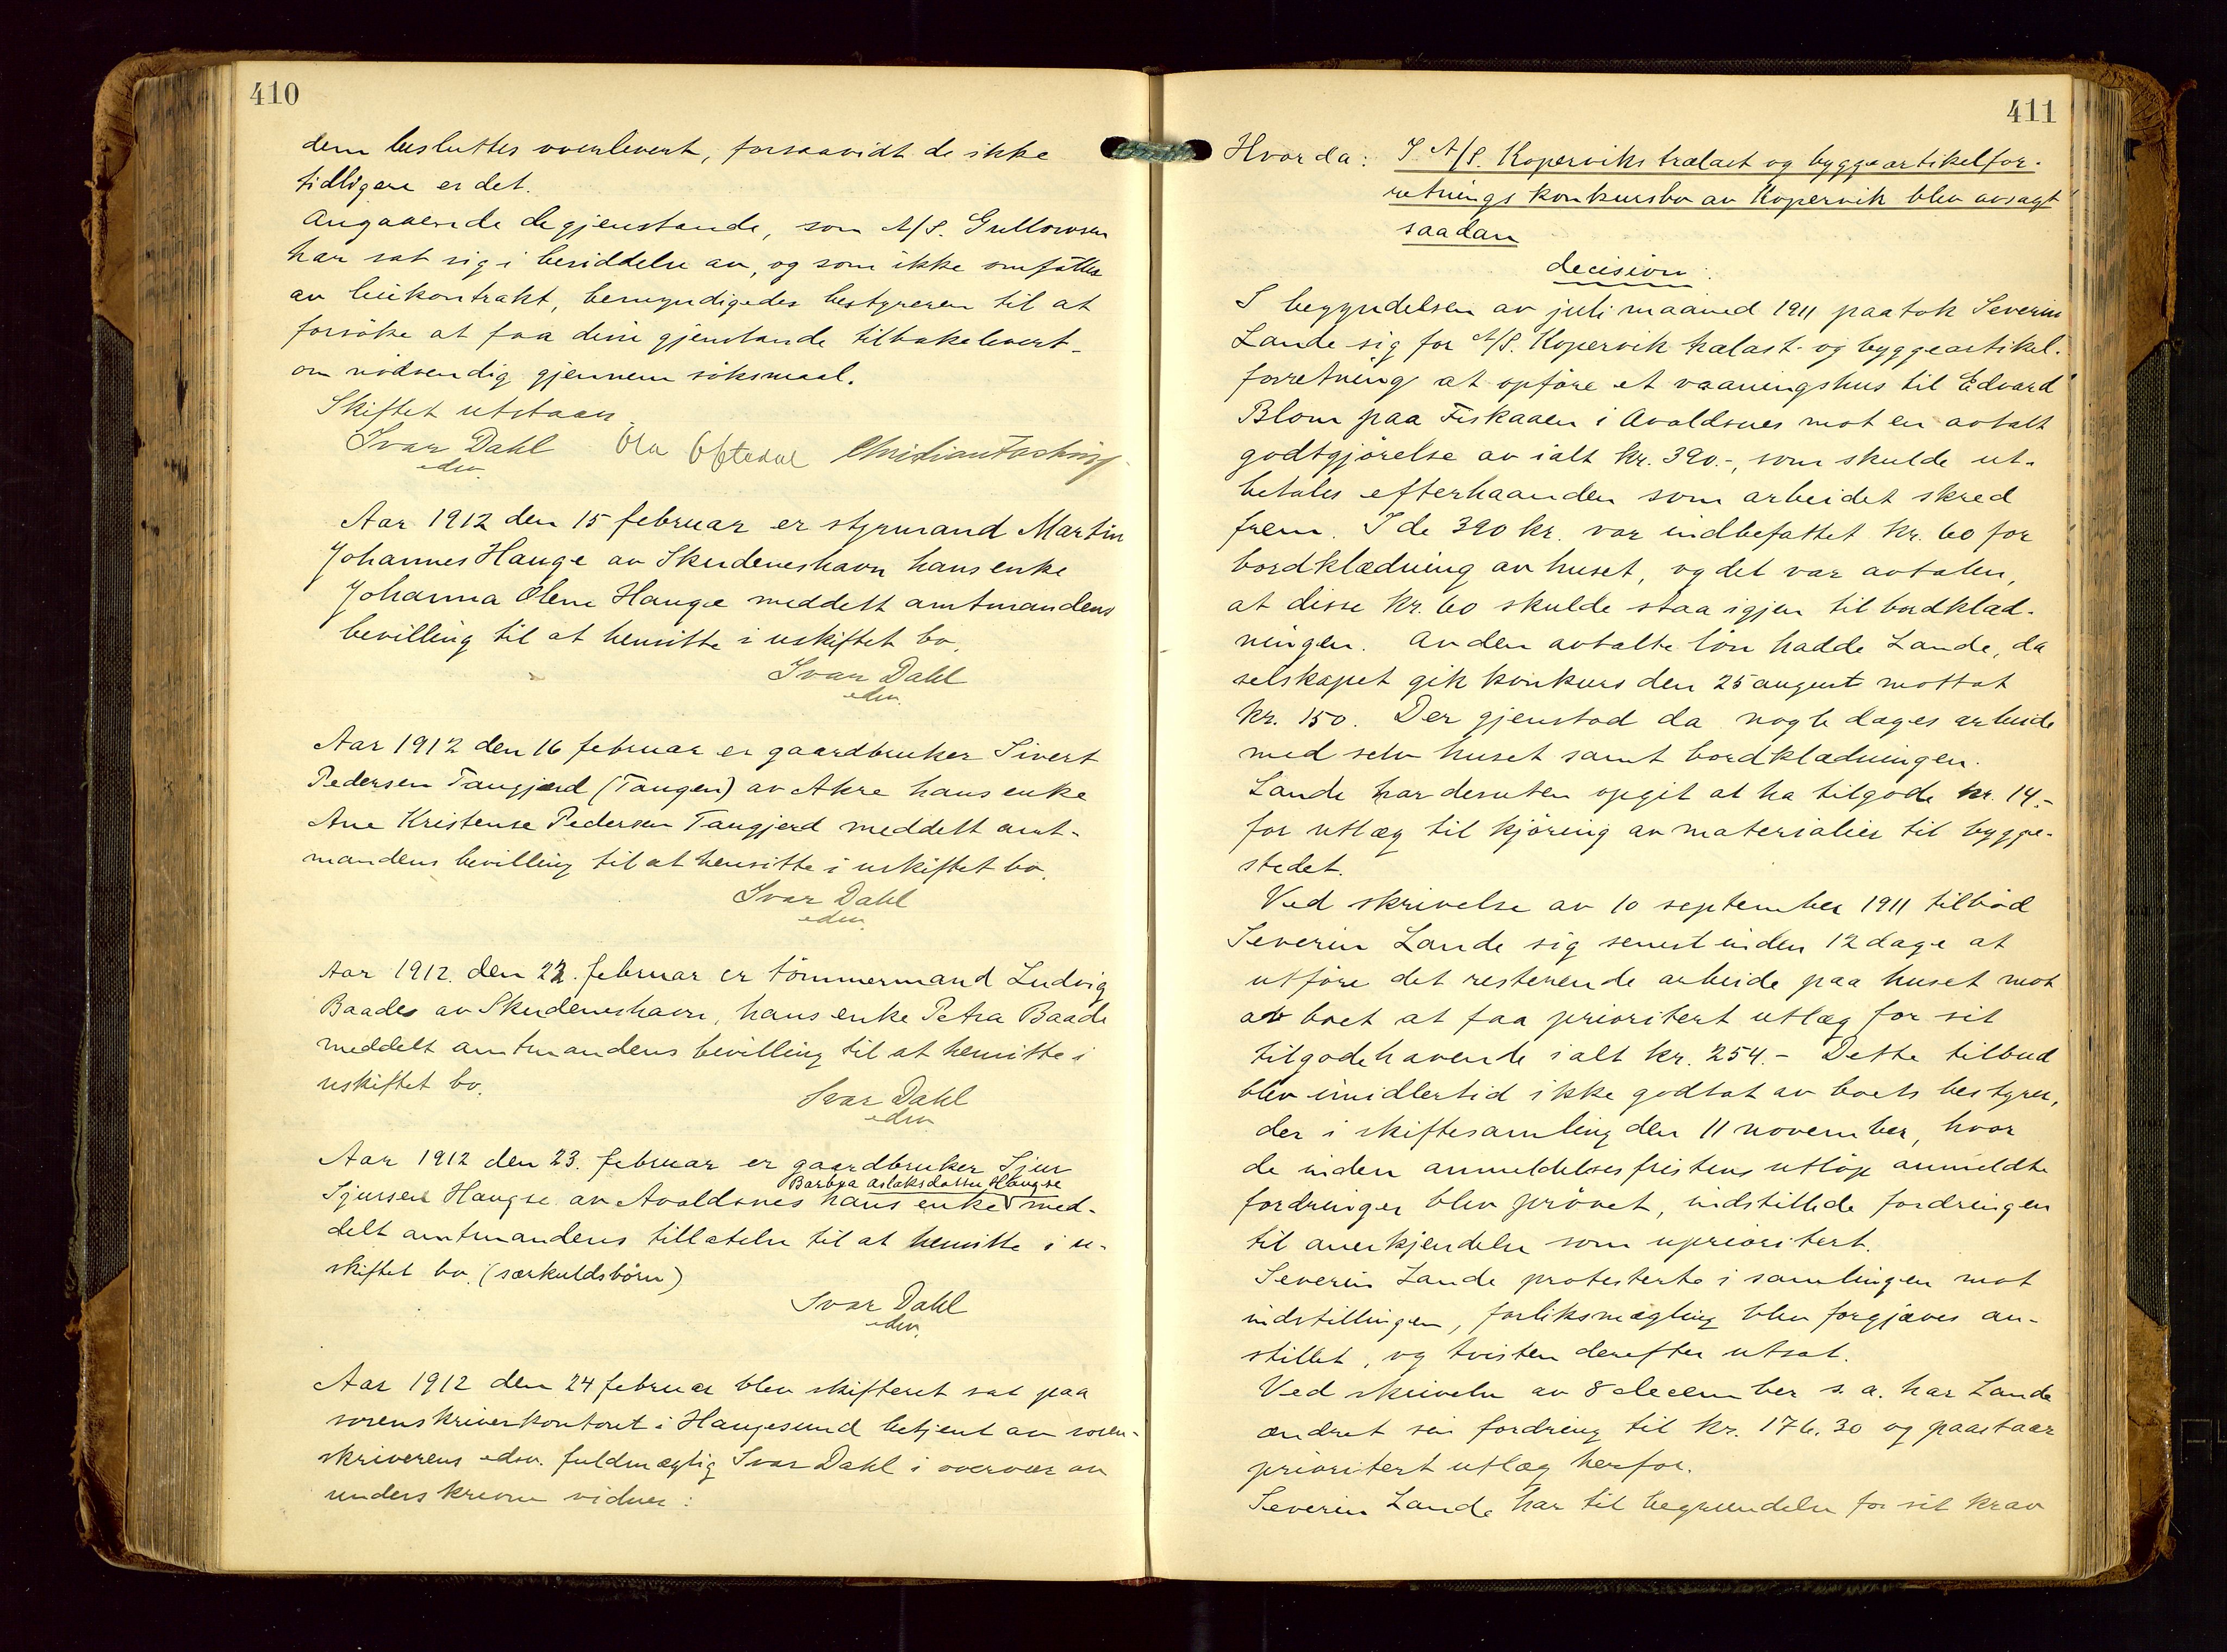 410
dem besluttes overlevert, forsaavidt de ikke
tidligere er det.
Angaaende de gjenstande, som A/S. Gullowsen
har sat sig i besiddelse av, og som ikke omfattes
av leiekontrakt, bemyndigedes bestyreren til at
forsöke at faa disse gjenstande tilbakelevert –
om nödvendig gjennem söksmaal.
Skiftet utstaar.
Ivar Dahl Ola Oftedal
edsv.
Aar 1912 den 15 februar er styrmand Martin
Johannes Hauge av Skudeneshavn hans enke
Johanna Olene Hauge meddelt amtmandens
bevilling til at hensitte i uskiftet bo.
Ivar Dahl
edsv.
Aar 1912 den 16 februar er gaardbruker Sivert
Pedersen Tangjerd (Tangen) av Akre hans enke
Ane Kristense Pedersen Tangjerd meddelt amt-
mandens bevilling til at hensitte i uskiftet bo.
Ivar Dahl
edsv.
Aar 1912. den 22. februar er tömmermand Ludvig
Baades av Skudeneshavn, hans enke Petra Baade
meddelt amtmandens bevilling til at hensitte i
uskiftet bo.
Ivar Dahl
edsv
Aar 1912 den 23. februar er gaardbruker Sjur
Barbra Aslaksdatter Haugse
Sjursen Haugse av Avaldsnes hans enke med-
delt amtmandens tillatelse til at hensitte i u-
skiftet bo. (særkuldsbörn)
Ivar Dahl
edsv.
Aar 1912 den 24 februar blev skifteret sat paa
sorenskriverkontoret i Haugesund betjent av soren-
skriverens edsv. fuldmægtig Ivar Dahl i overvær av
underskrevne vidner:
411
Hvorda: I A/S. Koperviks trælast og byggeartikelfor-
retnings konkursbo av Kopervik blev avsagt
saadan
decision:
I begyndelsen av juli maaned 1911 paatok Severin
Lande sig for A/S. Kopervik trælast- og byggeartikel-
forretning at opföre et vaaningshus til Edvard
Blom paa Fiskaaen i Avaldsnes mot en avtalt
godtgjörelse av ialt kr. 390.-, som skulde ut-
betales efterhaanden som arbeidet skred
frem. I de 390 kr. var indbefattet kr. 60 for
bordklædning av huset, og det var avtalen,
at disse kr. 60 skulde staa igjen til bordklæd-
ningen. Av den avtalte lön hadde Lande, da
selskapet gik konkurs den 25 august mottat
kr. 150. Der gjenstod da nogle dages arbeide
med selv huset samt bordklædningen.
Lande har desuten opgit at ha tilgode kr. 14.-
for utlæg til kjöring av materialier til bygge-
stedet.
Ved skrivelse av 10 september 1911 tilböd
Severin Lande sig senest inden 12 dage at
utföre det resterende arbeide paa huset mot
av boet at faa prioritert utlæg for sit
tilgodehavende ialt kr. 254.- Dette tilbud
blev imidlertid ikke godtat av boets bestyrer,
der i skiftesamling den 11 november, hvor
de inden anmeldelsesfristens utlöp anmeldte
fordringer blev prövet, indstillede fordringen
til anerkjendelse som uprioritert.
Severin Lande protesterte i samlingen mot
indstillingen, forliksmægling blev forgjæves an-
stillet, og tvisten derefter utsat.
Ved skrivelse av 8 december s. a. har Lande
ændret sin fordring til kr. 176.30 og paastaar
prioritert utlæg herfor.
Severin Lande har til begrundelse for sit krav